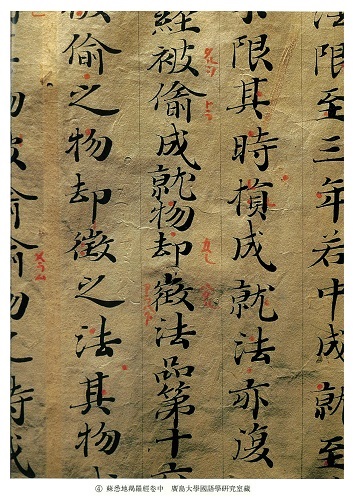 法限至三年若中成就至
不限其時成就法亦復
經被偷成就物却徵法品第十
被偷之物却徵之法其物
物被偷偷物之時成
④ 蘇悉地羯羅經卷中 廣島大學國語學研究室藏